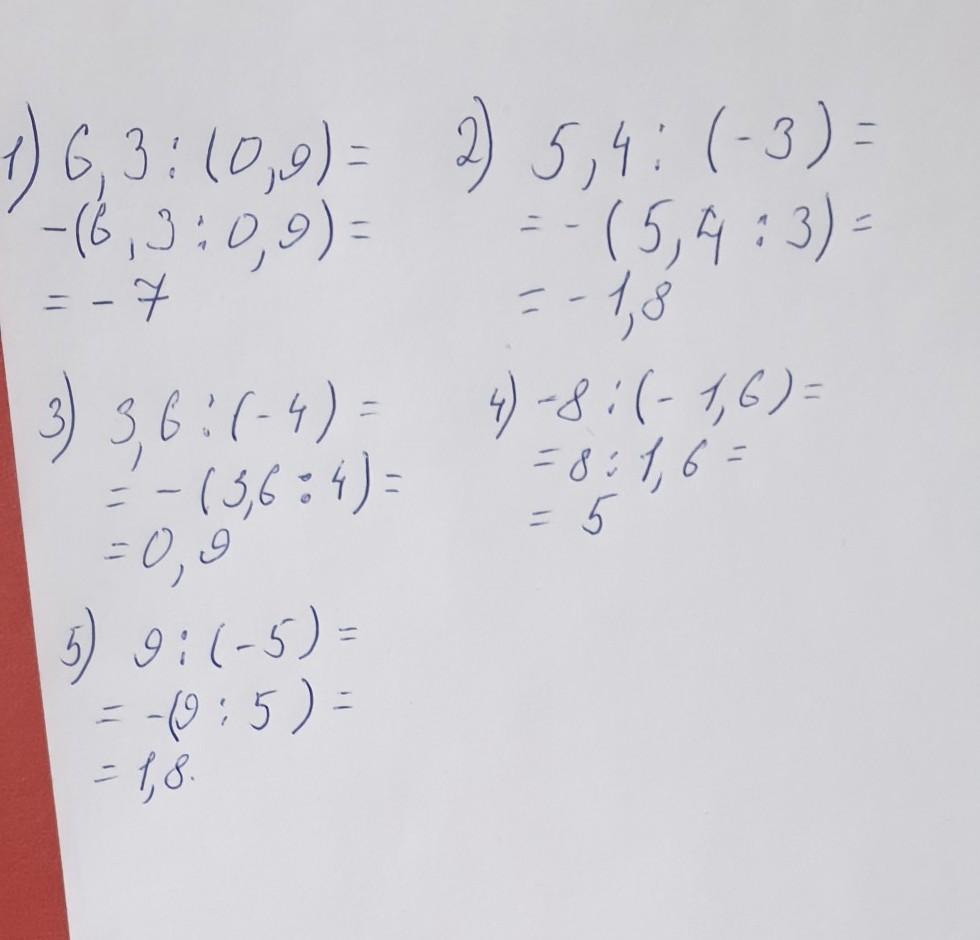 1) 6,3 : (0,9) =
-(6,3 : 0,9) =
= - 7
2) 5,4 : (-3) =
= - (5,4 : 3) =
= - 1,8
3) 3,6 : (-4) =
= - (3,6 : 4) =
= 0,9
4) -8 : (- 1,6) =
= 8 : 1,6 =
= 5
5) 9 : (-5) =
= -(9 : 5) =
= 1,8.